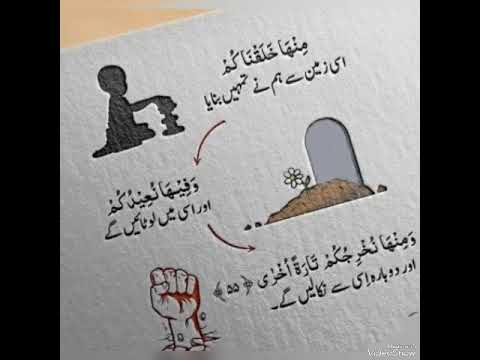 مِنْهَا خَلَقْنَاكُمْ
اسی زمین سے ہم نے تمہیں بنایا
وَفِيْهَا نُعِيْدُكُمْ
اور اسی میں لوٹائیں گے
وَمِنْهَا نُخْرِجُكُمْ تَارَةً اُخْرٰى ﴿۵۵﴾
اور دوبارہ اِسی سے نکالیں گے۔
VideoShow